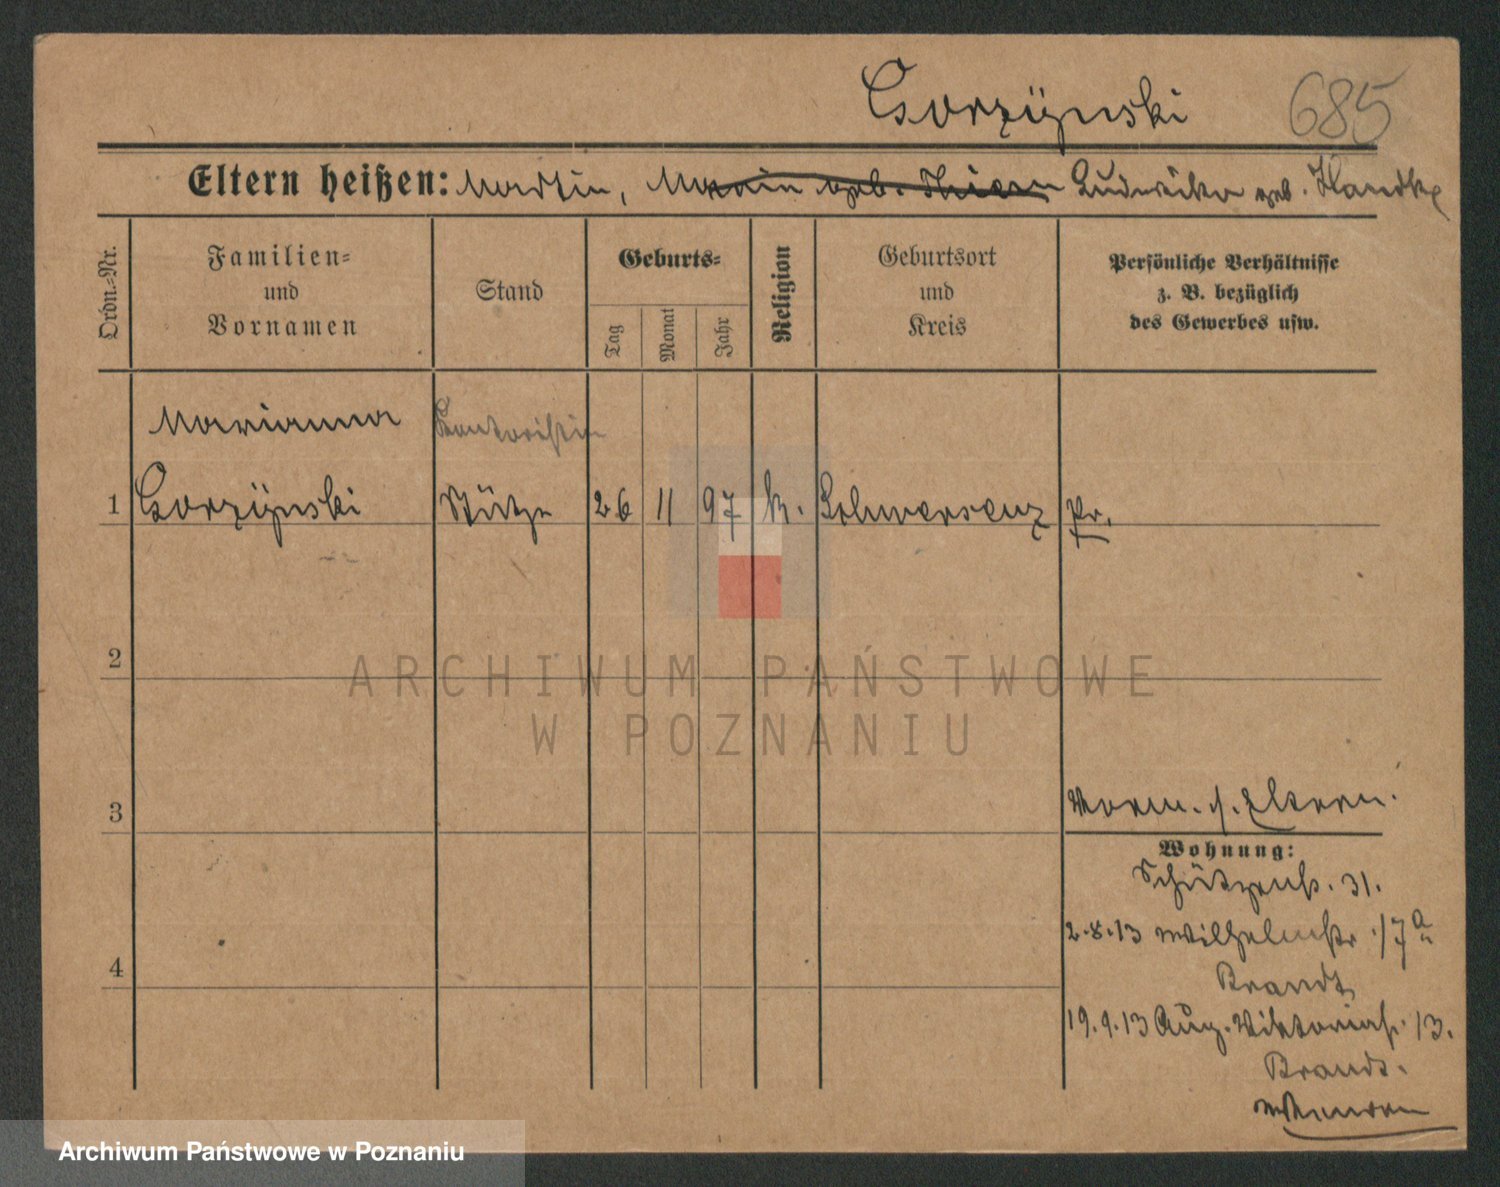 Gorzÿnski 685
Eltern heißen: Martin, Ludwika geb. Handke
Ordn.-Nr.
Familien- und Vornamen
Stand
Geburts-
Tag
Monat
Jahr
Religion
Geburtsort und Kreis
Persönliche Verhältnisse z. B. bezüglich des Gewerbes usw.
Marianna Kontoristin
1 Gorzÿnski Stütze 26 11 97 k. Schwersenz Pr.
2
ARCHIWUM PAŃSTWOWE
W POZNANIU
3 Eltern.
Wohnung:
Schützenstr. 31.
2.8.13 Wilhelmstr. 17a
4
Brandt
19.9.13 Aug. Viktoriastr. 13.
Brandt.
Archiwum Państwowe w Poznaniu